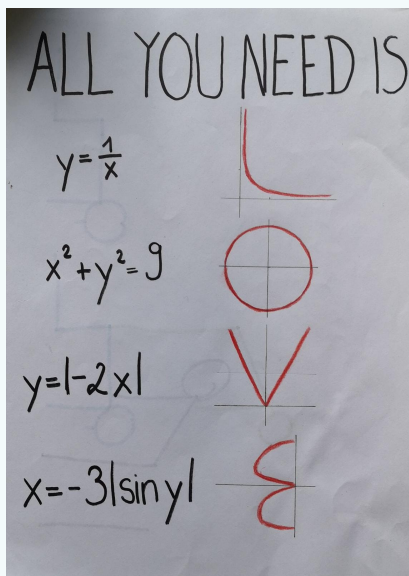 ALL YOU NEED IS
y = 1/x
x² + y² = 9
y = |-2x|
x = -3|sin y|